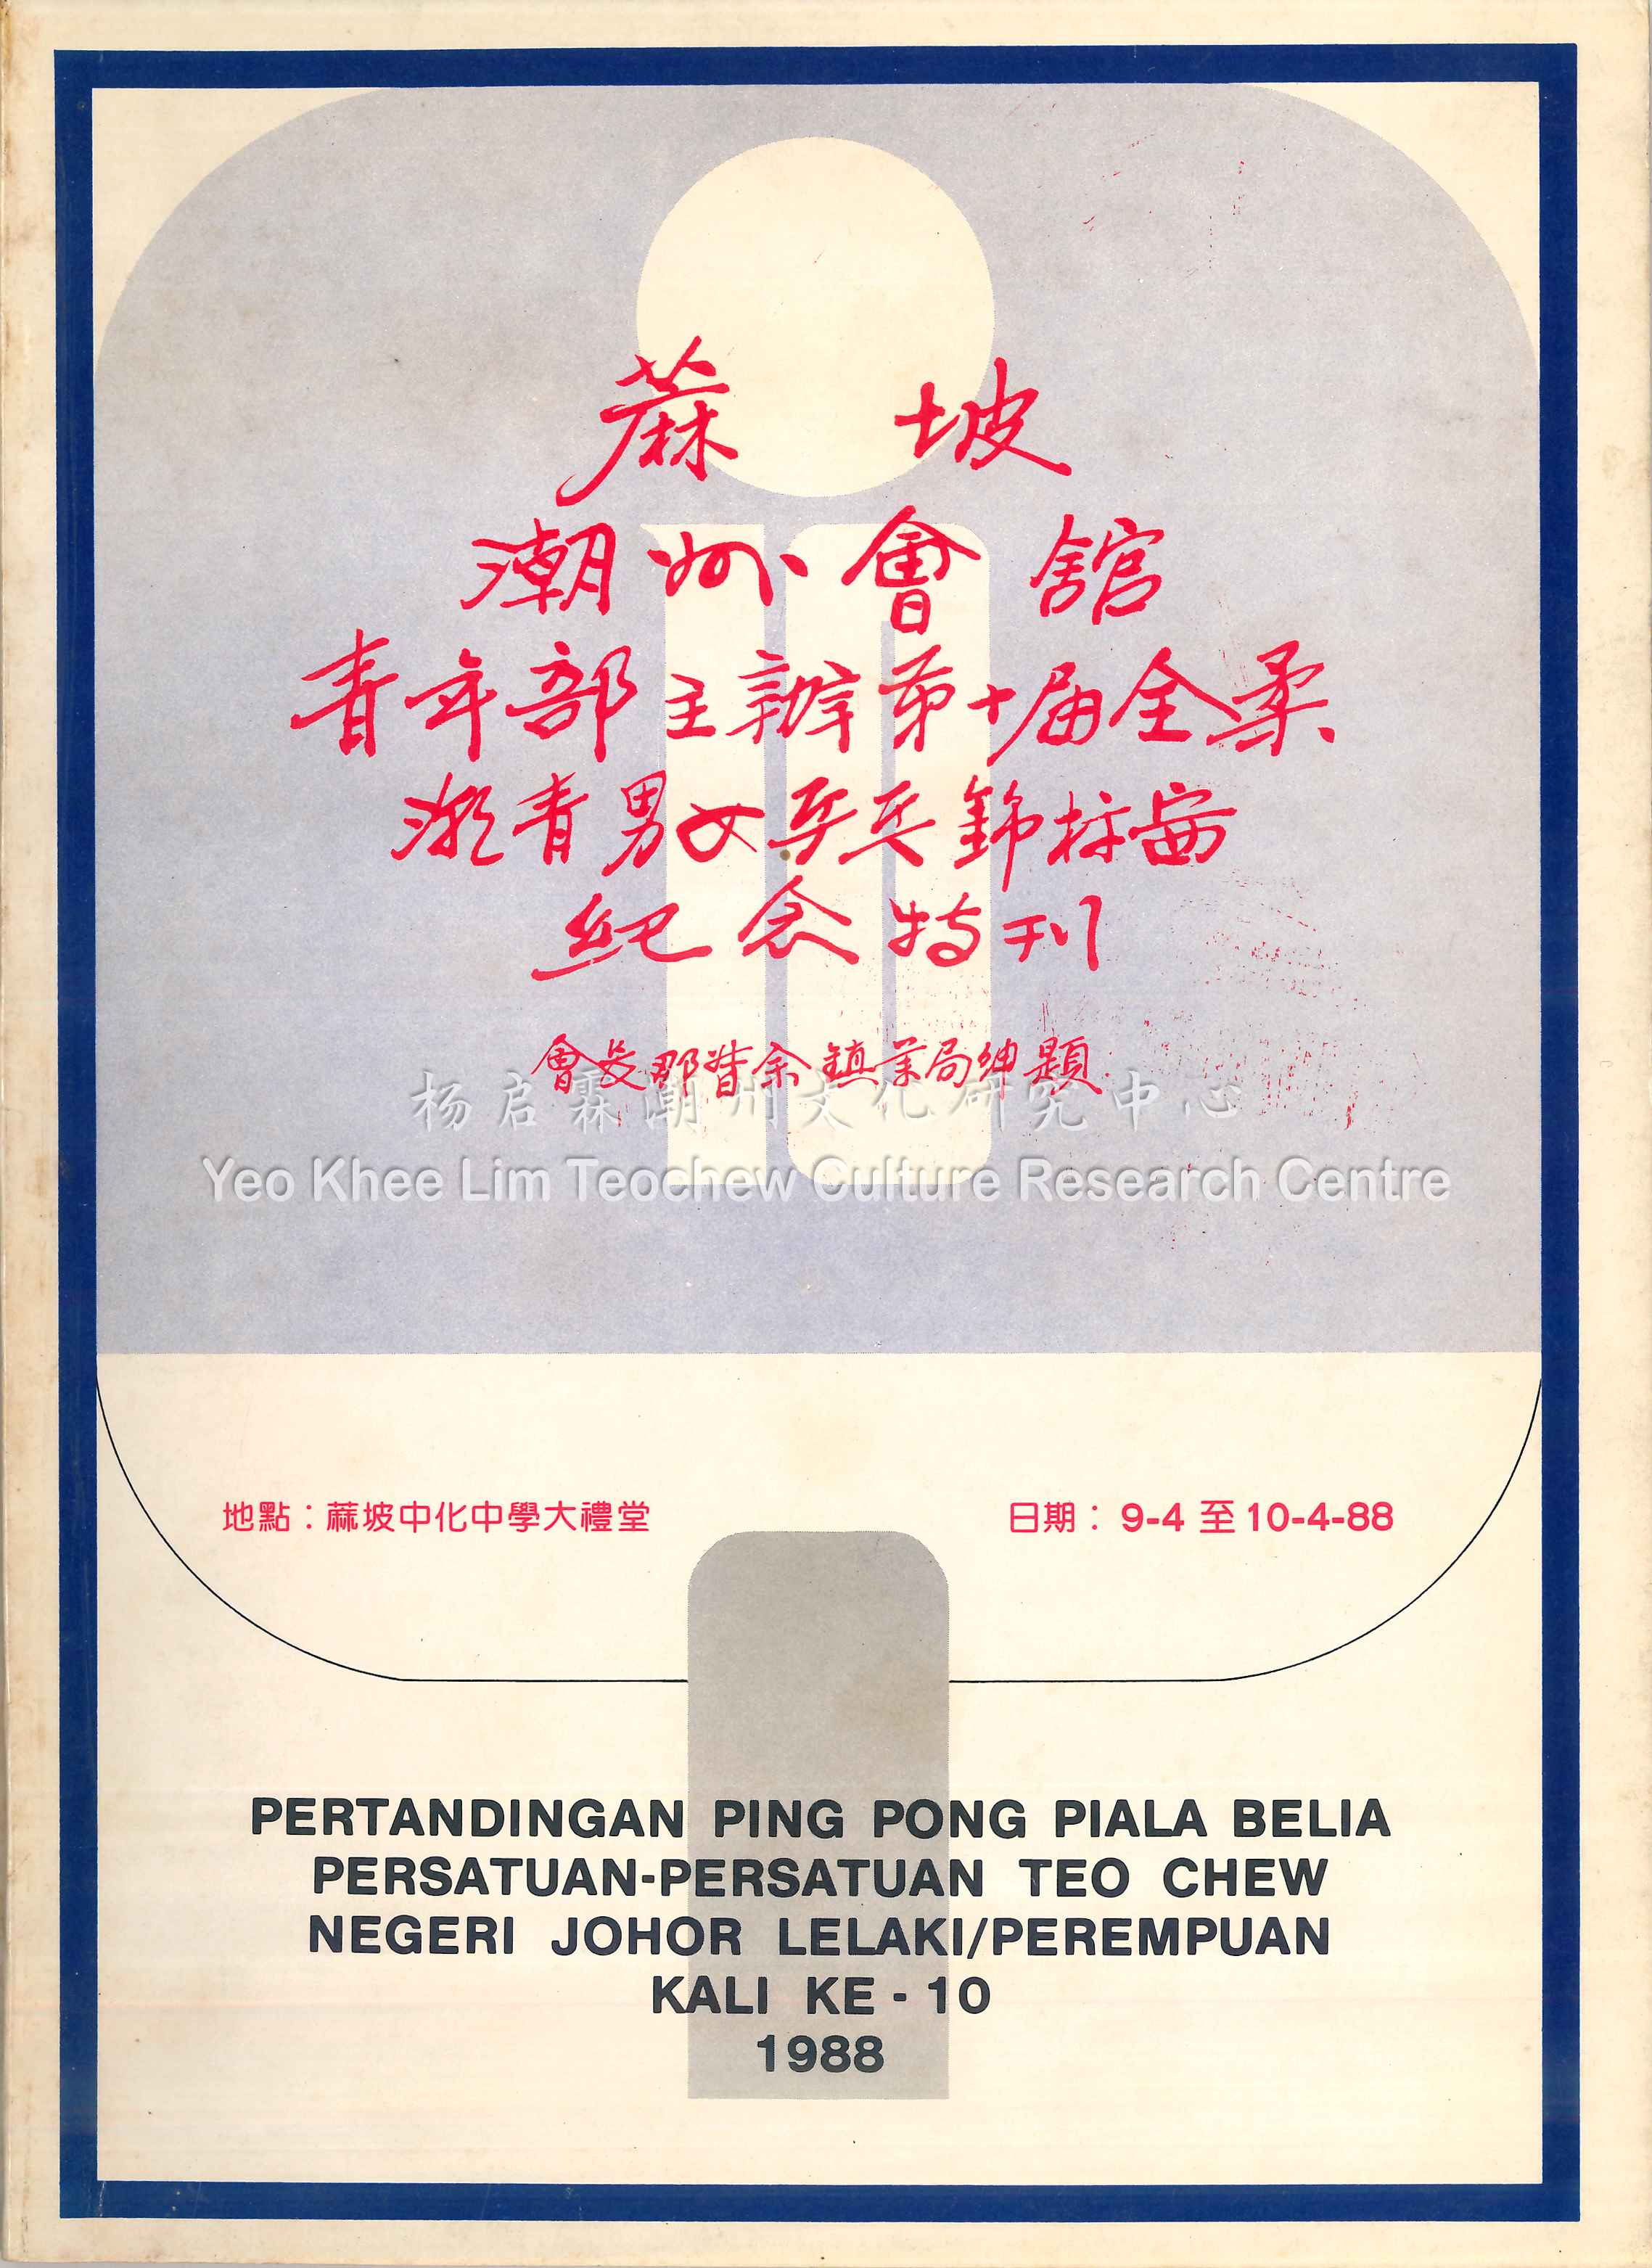 蔴坡
潮州會舘
青年部主辦第十届全柔
潮青男女乒乓錦标赛
紀念特刊
會長那督余鎮業局紳題
杨启霖潮州文化研究中心
Yeo Khee Lim Teochew Culture Research Centre
地點：蔴坡中化中學大禮堂
日期： 9-4 至 10-4-88
PERTANDINGAN PING PONG PIALA BELIA
PERSATUAN-PERSATUAN TEO CHEW
NEGERI JOHOR LELAKI/PEREMPUAN
KALI KE - 10
1988